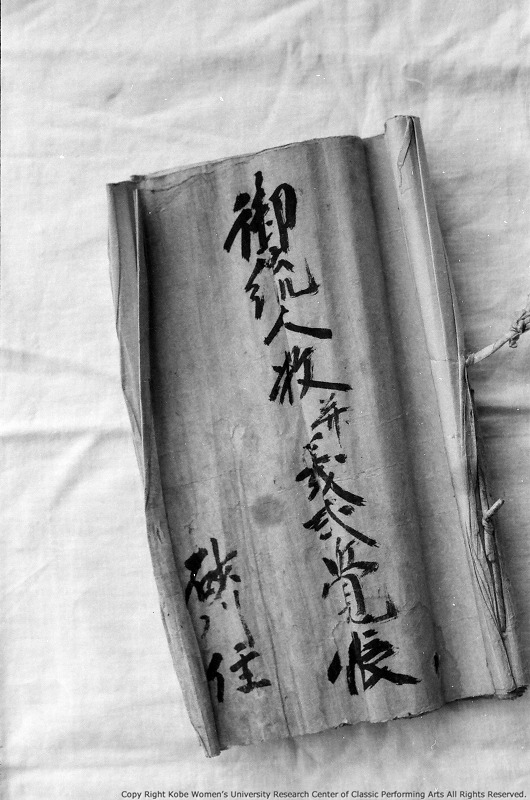 御統人数并義式覚帳
住
Copy Right Kobe Women's University Research Center of Classic Performing Arts All Rights Reserved.